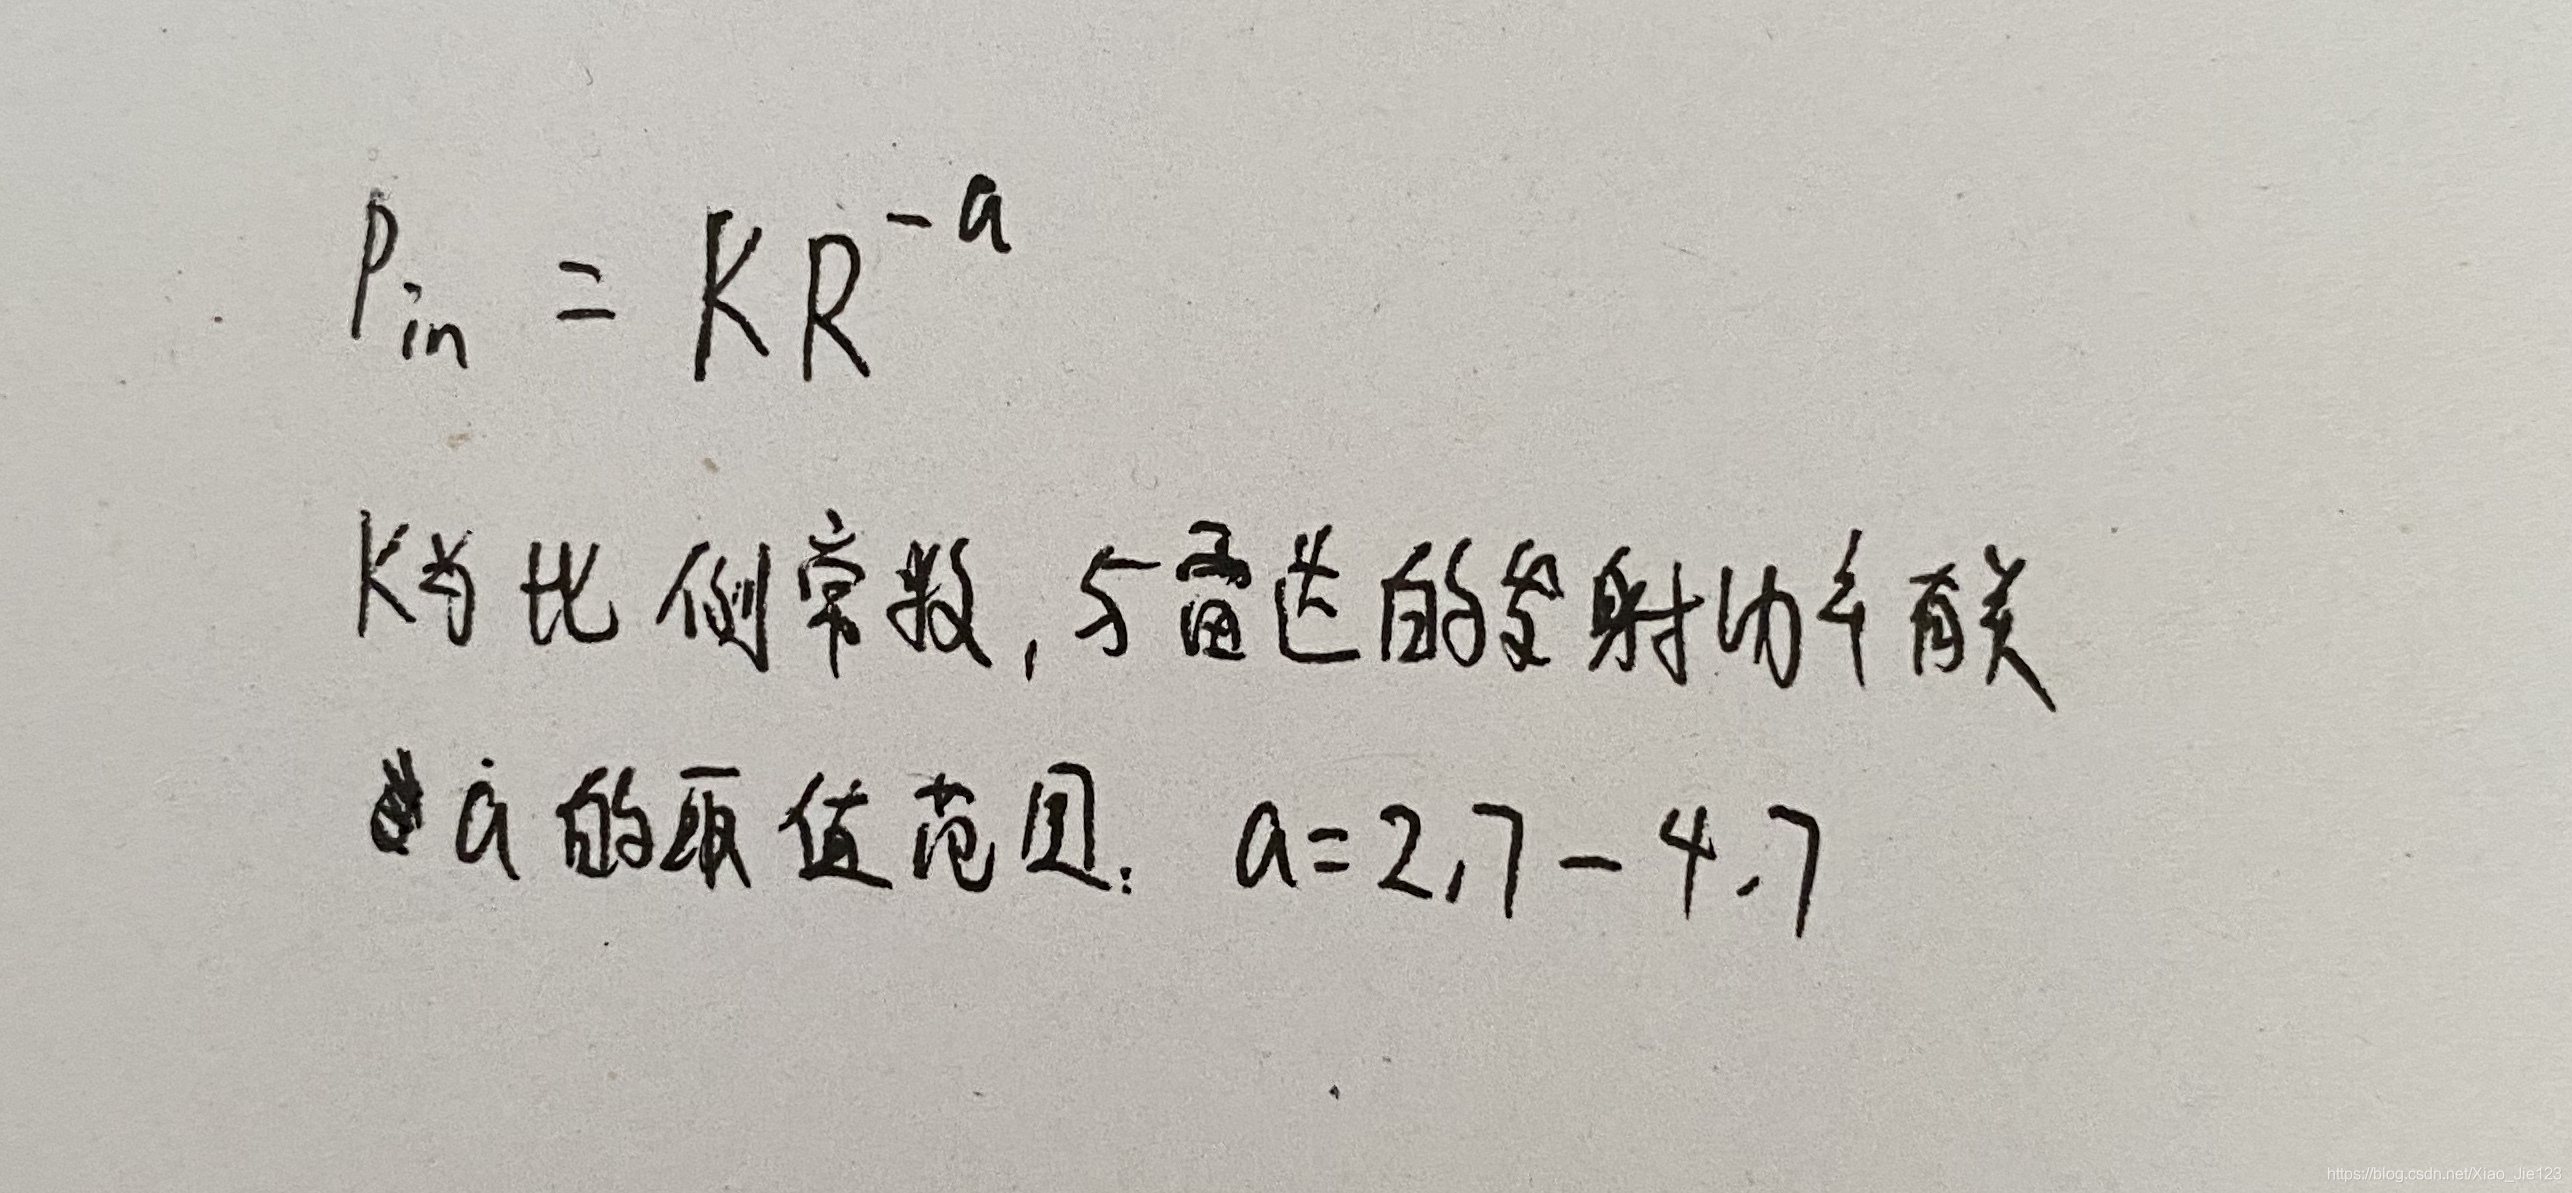 P_in = KR^-a
K为比例常数,与雷达的发射功率有关
a的取值范围: a=2.7-4.7
https://blog.csdn.net/Xiao_Jie123